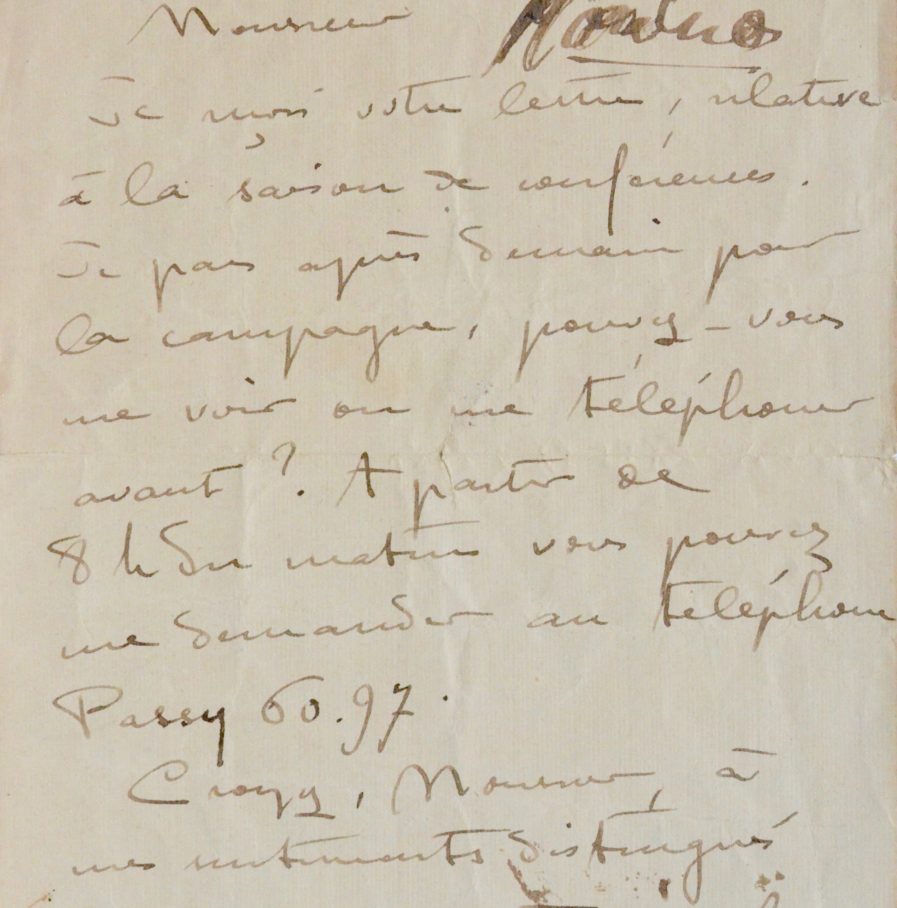 Monsieur
Je reçois votre lettre, relative
à la saison de conférences.
Je pars après demain pour
la campagne, pouvez-vous
me voir ou me téléphoner
avant ? A partir de
8 h du matin vous pouvez
me demander au téléphone
Passy 60.97.
Croyez, Monsieur, à
mes sentiments distingués